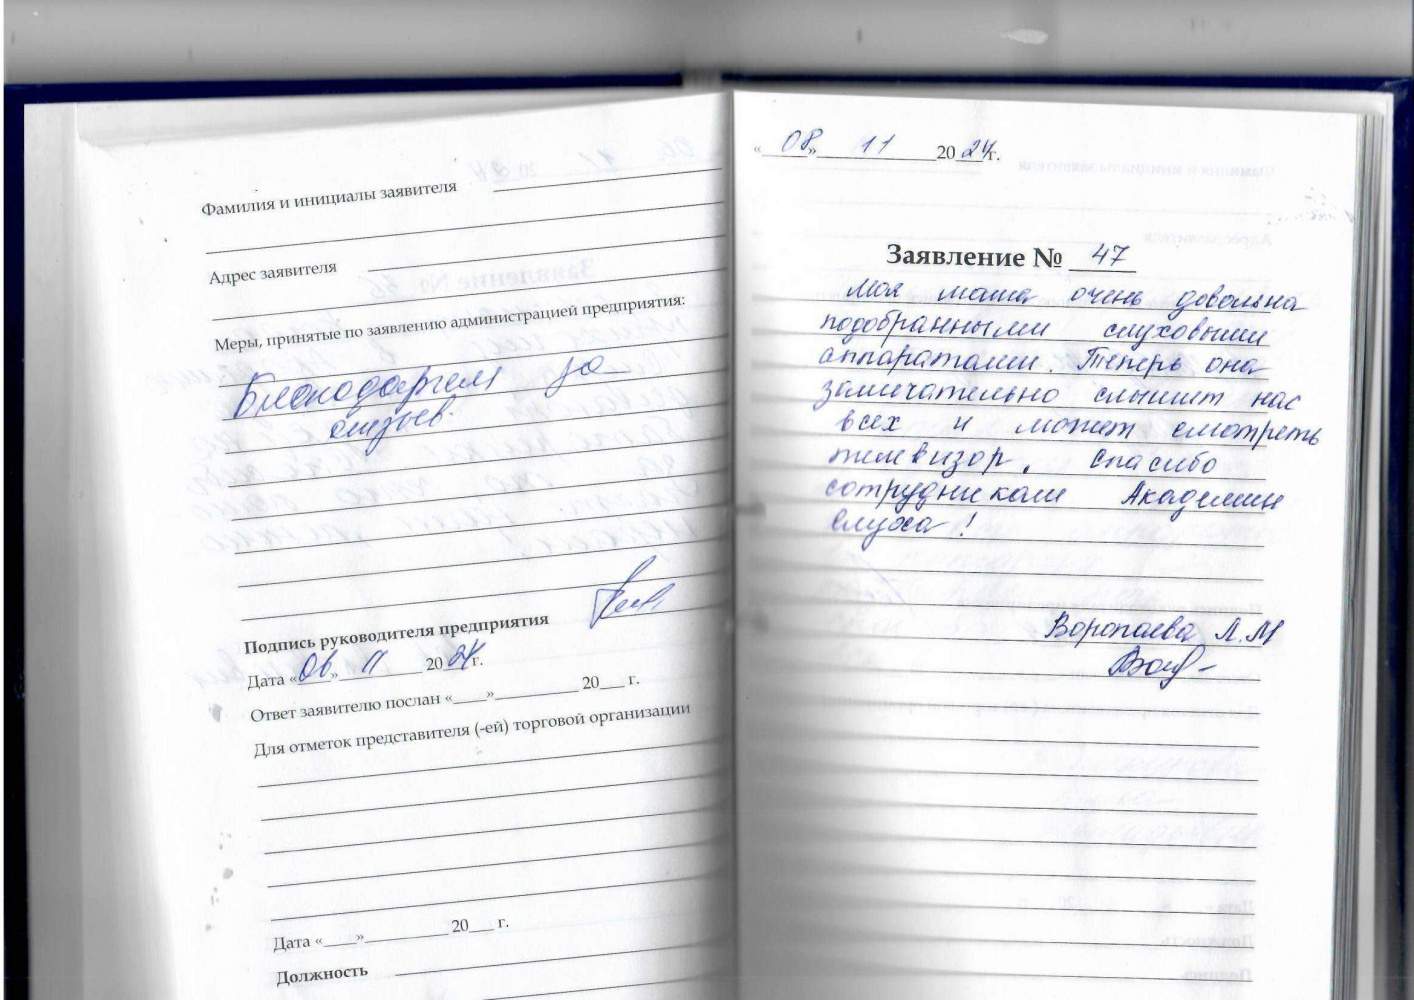 Фамилия и инициалы заявителя
Адрес заявителя
Меры, принятые по заявлению администрацией предприятия:
Благодарим за
отзыв.
Подпись руководителя предприятия
Дата «06» 11 2024 г.
Ответ заявителю послан «___»__________ 20___ г.
Для отметок представителя (-ей) торговой организации
Дата «____»__________ 20___ г.
Должность
«08» 11 2024 г.
Заявление № 47
Моя мама очень довольна
подобранными слуховыми
аппаратами. Теперь она
замечательно слышит нас
всех и может смотреть
телевизор. Спасибо
сотрудникам Академии
слуха!
Воропаева Л.М